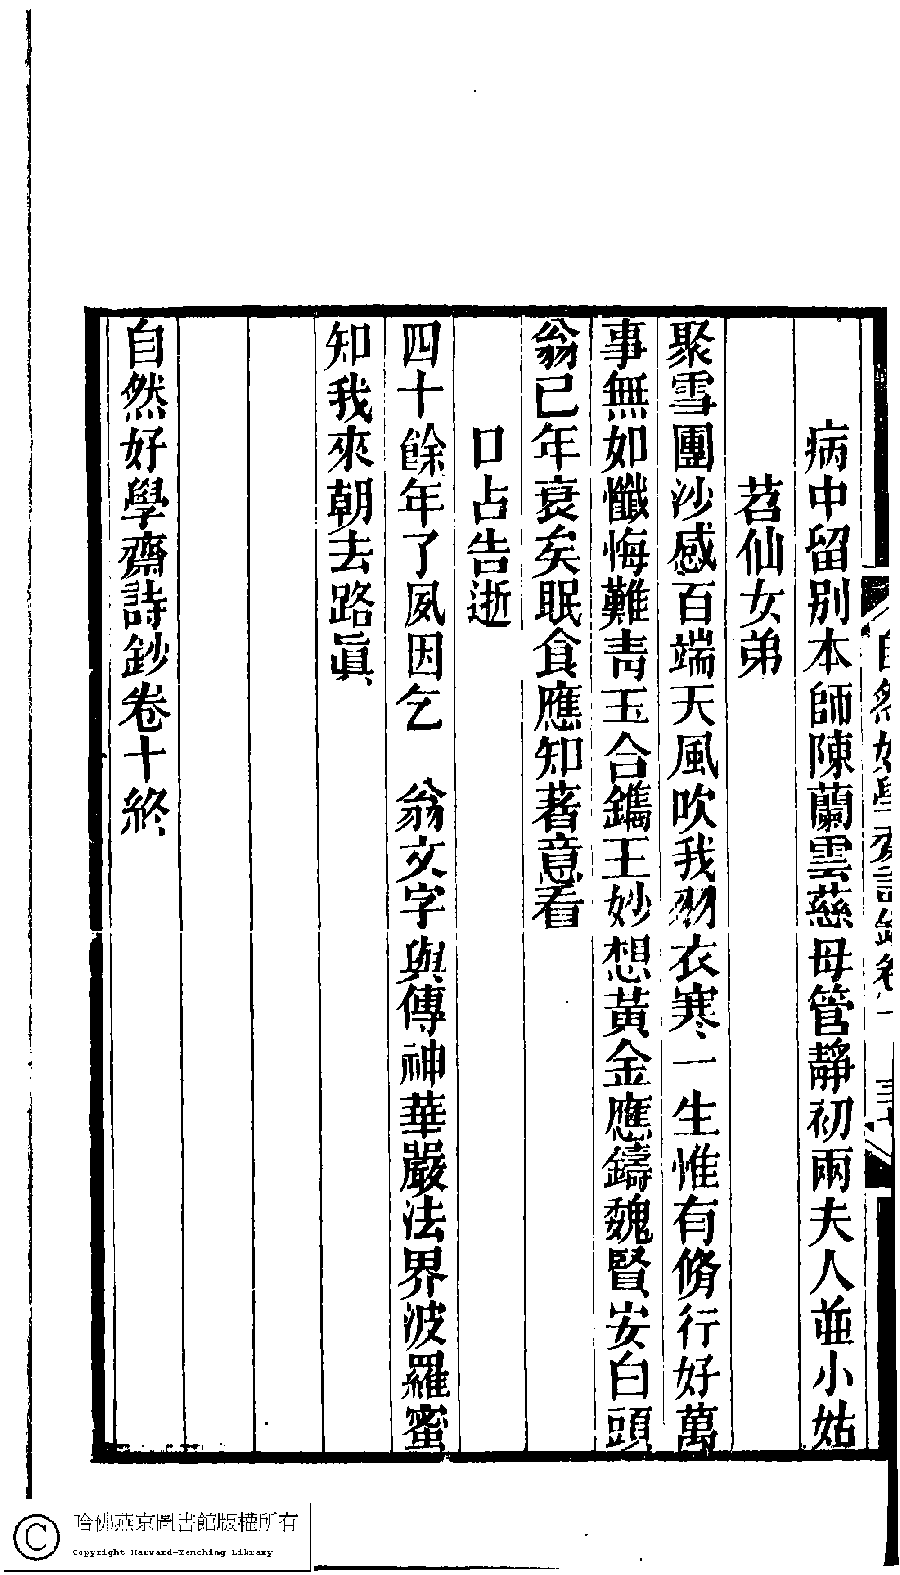 病中留別本師陳蘭雲慈母管靜初兩夫人並小姑
苕仙女弟
聚雪團沙感百端天風吹我羽衣寒一生惟有脩行好萬
事無如懺悔難靑玉合鐫王妙想黃金應鑄魏賢安白頭
翁已年衰矣眠食應知著意看
口占告逝
四十餘年了夙因乞　翁文字與傳神華嚴法界波羅蜜
知我來朝去路眞
自然好學齋詩鈔卷十終
哈佛燕京圖書館版權所有
Copyright Harvard-Yenching Library